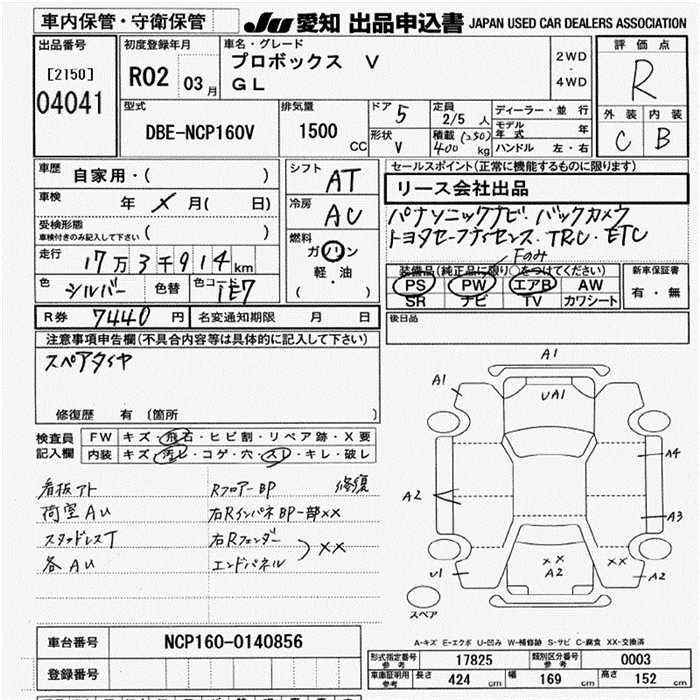 車内保管・守衛保管
JU 愛知 出品申込書 JAPAN USED CAR DEALERS ASSOCIATION
出品番号
[2150]
04041
初度登録年月
R02 03月
車名・グレード
プロボックス V
GL
2WD
・
4WD
評価点
R
外装 内装
C B
型式
DBE-NCP160V
排気量
1500
CC
ドア 5
形状 V
定員
2/5 人
積載 (250)
400 kg
ディーラー・並行
モデル年式 年
ハンドル 左・右
車歴 自家用・( )
車検 年 X 月( 日)
受検形態
車検付きのみ記入して下さい ( )
走行
17万3千914km
色 シルバー 色替 色コード 1E7
シフト
AT
冷房
AC
燃料
ガソリン
軽・油
( )
セールスポイント(正常に機能するものに限ります)
リース会社出品
パナソニックナビ・バックカメラ
トヨタセーフティセンス・TRC・ETC
Fのみ
装備品(純正品に限り○をつけてください)
PS PW エアB AW
SR ナビ TV カワシート
新車保証書
有・無
R券 7440 円 名変通知期限 月 日
後日品
注意事項申告欄(不具合内容等は具体的に記入して下さい)
スペアタイヤ
修復歴 有 (箇所 )
検査員
記入欄
FW キズ・飛石・ヒビ割・リペア跡・X要
内装 キズ・汚レ・コゲ・穴・スレ・キレ・破レ
看板アト
荷室AU
スタッドレスT
各AU
Rフロアー BP 修復
右Rインパネ BP一部××
右Rフェンダー
エンドパネル
) ××
A1
A1
UA1
A4
A2
A3
U1
××
A2
××
A2
スペア
A-キズ E-エクボ U-凹み W-補修跡 S-サビ C-腐食 XX-交換済
車台番号 NCP160-0140856
登録番号
形式指定番号
参考
17825
類別区分番号
参考
0003
車庫証明用
参考
長さ 424 cm 幅 169 cm 高さ 152 cm